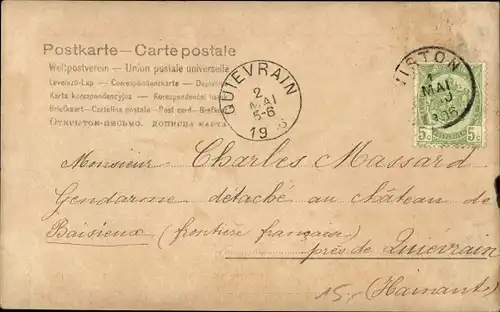 Postkarte — Carte postale
Weltpostverein — Union postale universelle
Levelező-Lap — Correspondenzkarte — Dopisnice
Karta korespondencyjna — Korespondenční lístek
Briefkaart — Cartolina postale — Post card — Brefkort
Открытое письмо.
QUIEVRAIN
2
MAI
5-6
VIRTON
1
MAI
5c 5c
Monsieur Charles Massard
Gendarme détaché au château de
Baisieux (frontière française)
près de Quiévrain
15 (Hainaut)